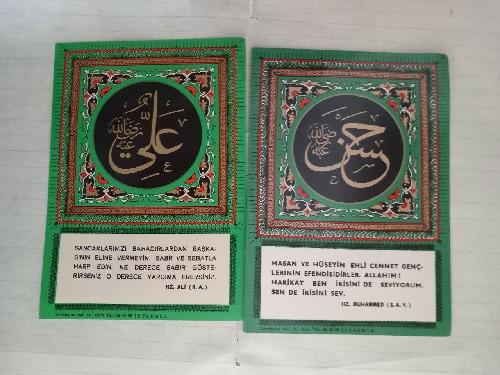 علي
رضي الله عنه
SANCAKLARINIZI BAHADIRLARDAN BAŞKA-
SININ ELİNE VERMEYİN. SABR VE SEBATLA
HARP EDİN. NE DERECE SABIR GÖSTE-
RİRSENİZ O DERECE YARDIMA ERERSİNİZ.
HZ. ALİ (R.A.)
حسن
رضي الله عنه
HASAN VE HÜSEYİN EHLİ CENNET GENÇ-
LERİNİN EFENDİSİDİRLER. ALLAHIM!
HAKİKAT BEN İKİSİNİ DE SEVİYORUM.
SEN DE İKİSİNİ SEV.
HZ. MUHAMMED (S.A.V.)